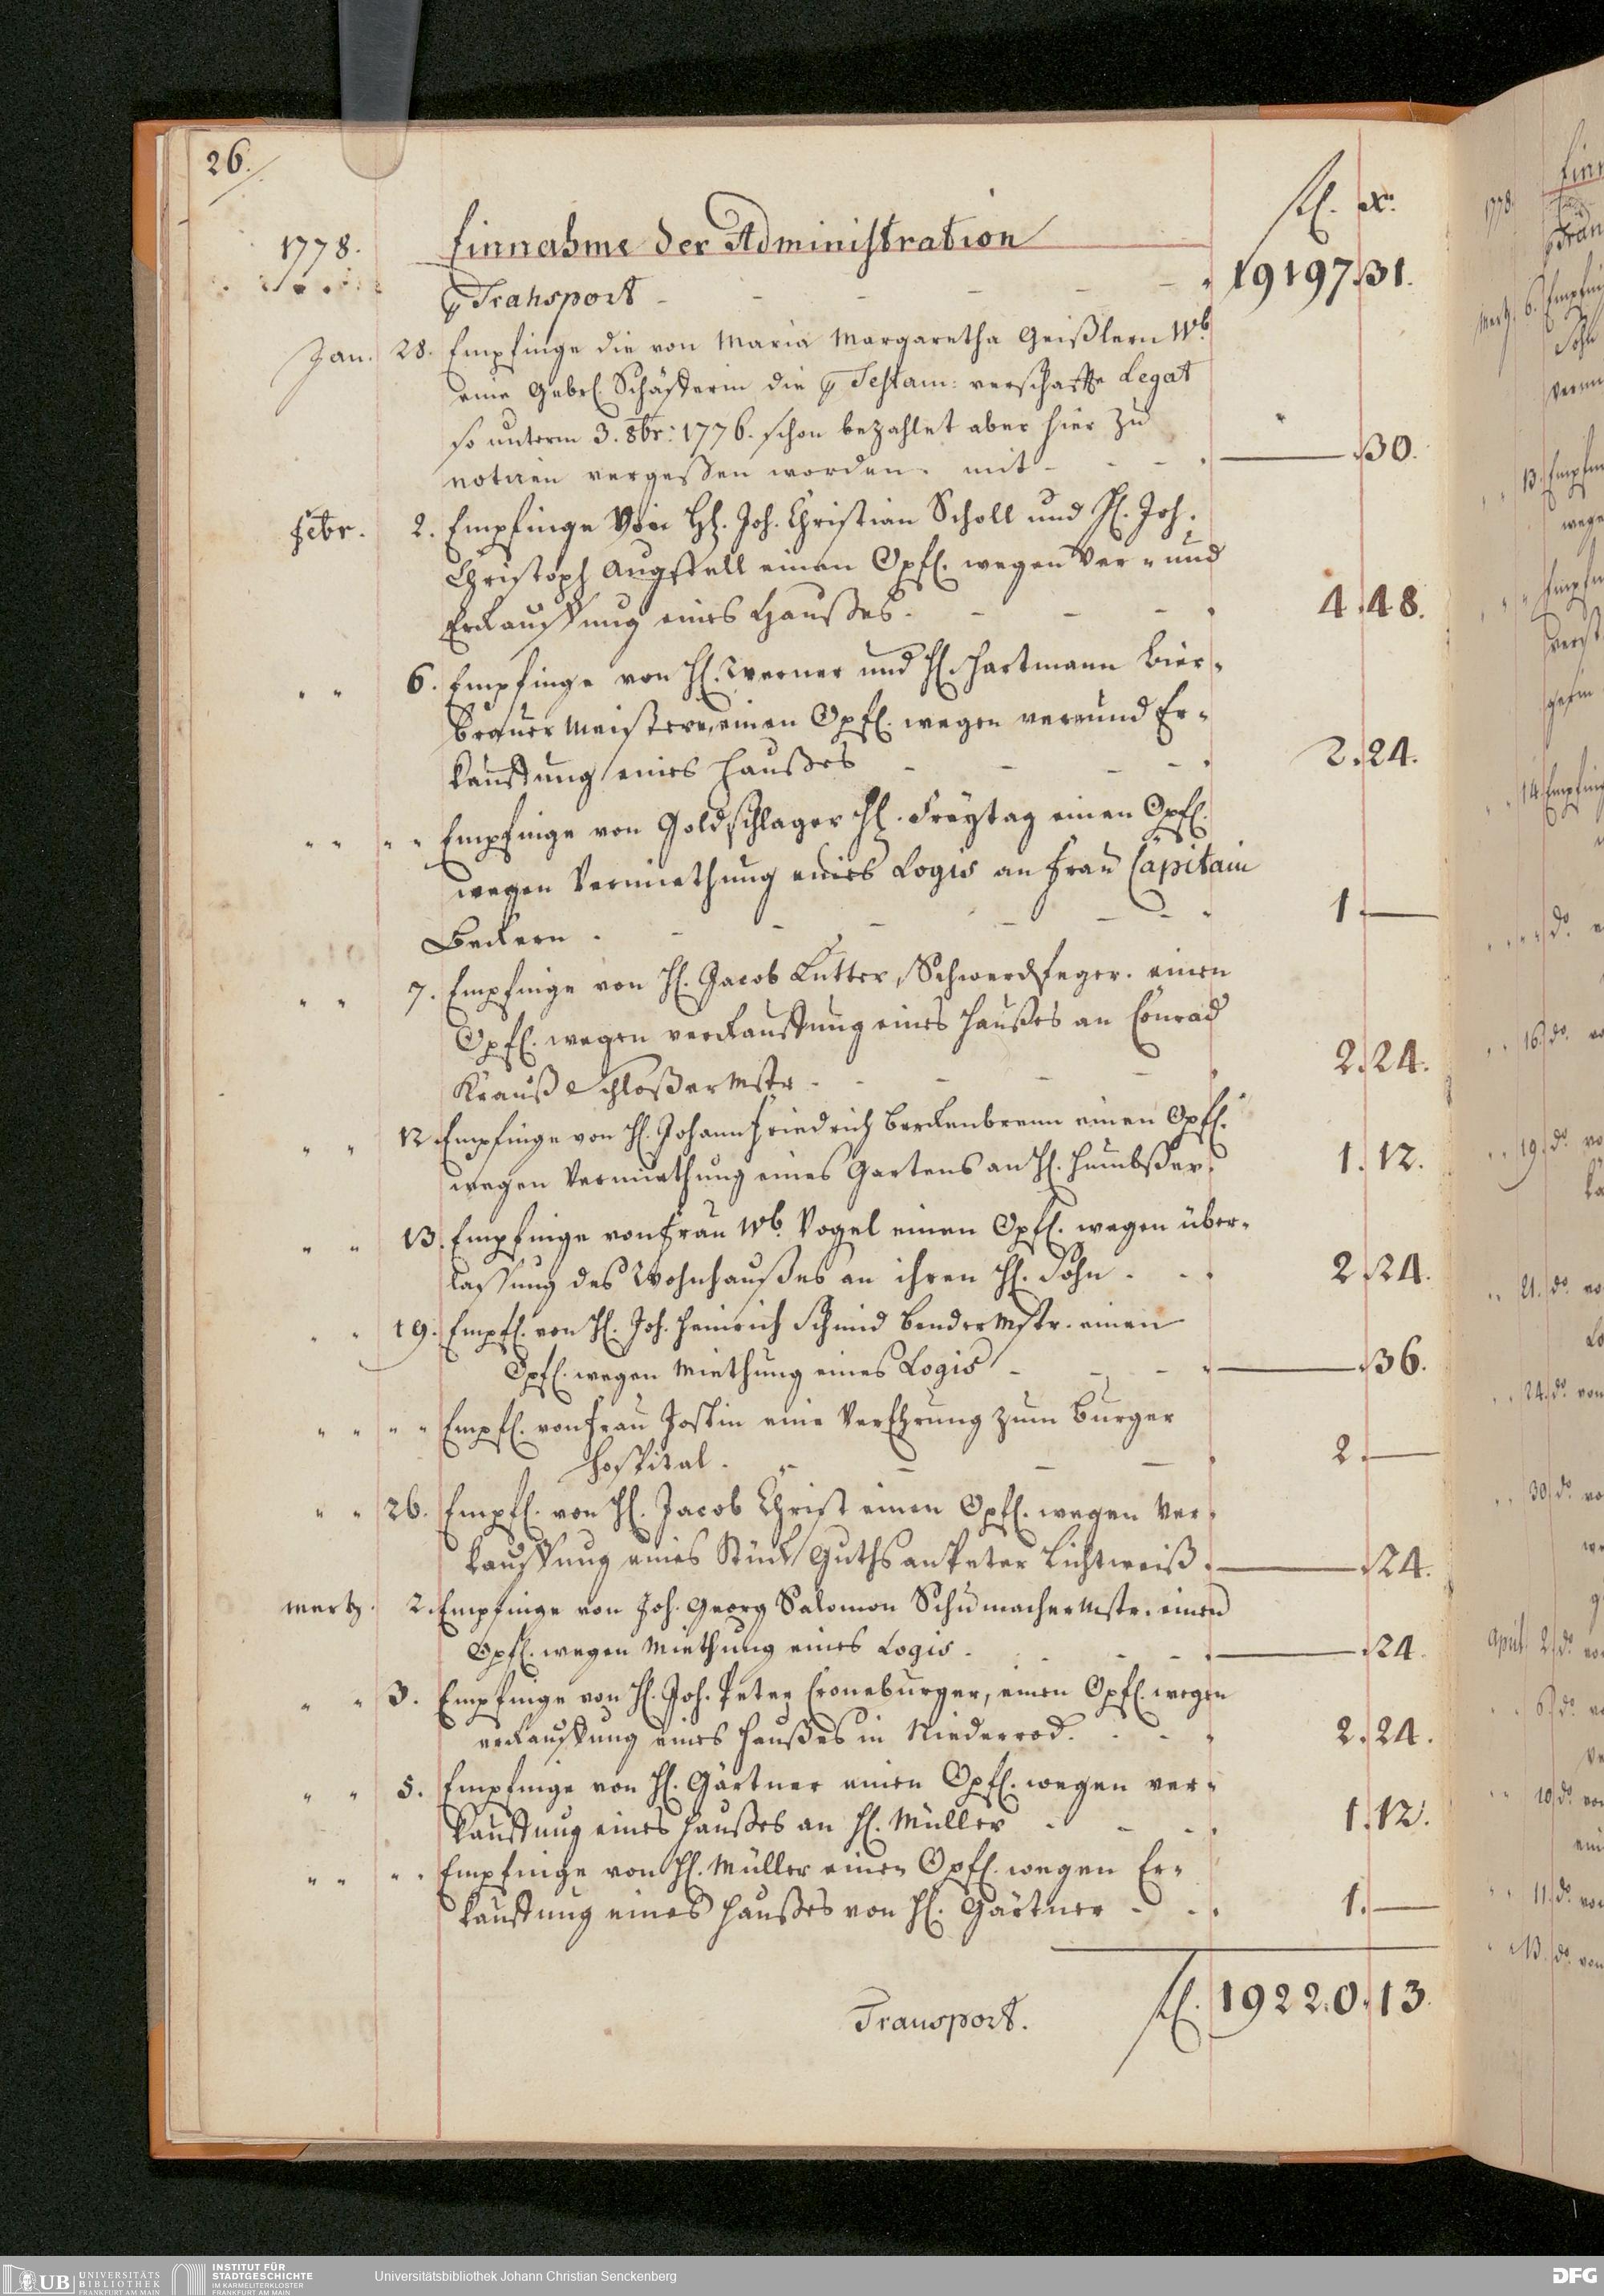 26.
fl. xr.
1778. Einnahme der Administration
p Transport - - - - - 19197. 31.
Jan. 28. Empfinge die von Maria Margaretha Geißlern Wb.
eine Gebrl. Schäfferin die p Testam: verschaffte Legat
so unterm 3. 8br: 1776. schon bezahlet aber hier zu
notiren vergeßen worden. mit - - - — 30.
Febr. 2. Empfinge von HH. Joh. Christian Scholl und H. Joh.
Christoph Augstell einen Opfl. wegen Ver- und
Erkauffung eines Haußes. - - - 4. 48.
" " 6. Empfinge von H. Werner und H. Hartmann Bier-
brauer Meistere, einen Opfl. wegen ver und Er-
kauffung eines Haußes - - - - 2. 24.
" " " " Empfinge von Goldschlager H. Freytag einen Opfl.
wegen Vermiethung eines Logis an Frau Capitain
Beckern. - - - - - - 1. —
" " 7. Empfinge von H. Jacob Lutter, Schwerdfeger. einen
Opfl. wegen verkauffung eines Haußes an Conrad
Krauß Schloßer Mstr. - - - - 2. 24.
" " 12. Empfinge von H. Johann Friedrich Berckenbrenn einen Opfl.
wegen Vermiethung eines Gartens an H. Humbßer. 1. 12.
" " 13. Empfinge von Frau Wb. Vogel einen Opfl. wegen über-
lassung des Wohnhaußes an ihren H. Sohn. - - 2. 24.
" " 19. Empfl. von H. Joh. Heinrich Schmid Bender Mstr. einen
Opfl. wegen Miethung eines Logis - - - — 36.
" " " " Empfl. von Frau Jostin eine VerEhrung zum Burger
Hospital. - - - - 2. —
" " 26. Empfl. von H. Jacob Christ einen Opfl. wegen Ver-
kauffung eines Stück Guths an Peter Lichtweiß. — 24.
Mertz. 2. Empfinge von Joh. Georg Salomon Schumacher Mstr. einen
Opfl. wegen Miethung eines Logis. - - - — 24.
" " 3. Empfinge von H. Joh. Peter Croneburger, einen Opfl. wegen
verkauffung eines Haußes in Niederrod. - - - 2. 24.
" " 5. Empfinge von H. Gärtner einen Opfl. wegen ver-
kauffung eines Haußes an H. Müller - - - 1. 12.
" " " " Empfinge von H. Müller einen Opfl. wegen Er-
kauffung eines Haußes von H. Gärtner - - - 1. —
Transport. fl. 19220. 13.
UB UNIVERSITÄTS
BIBLIOTHEK
FRANKFURT AM MAIN
INSTITUT FÜR
STADTGESCHICHTE
IM KARMELITERKLOSTER
FRANKFURT AM MAIN
Universitätsbibliothek Johann Christian Senckenberg
DFG